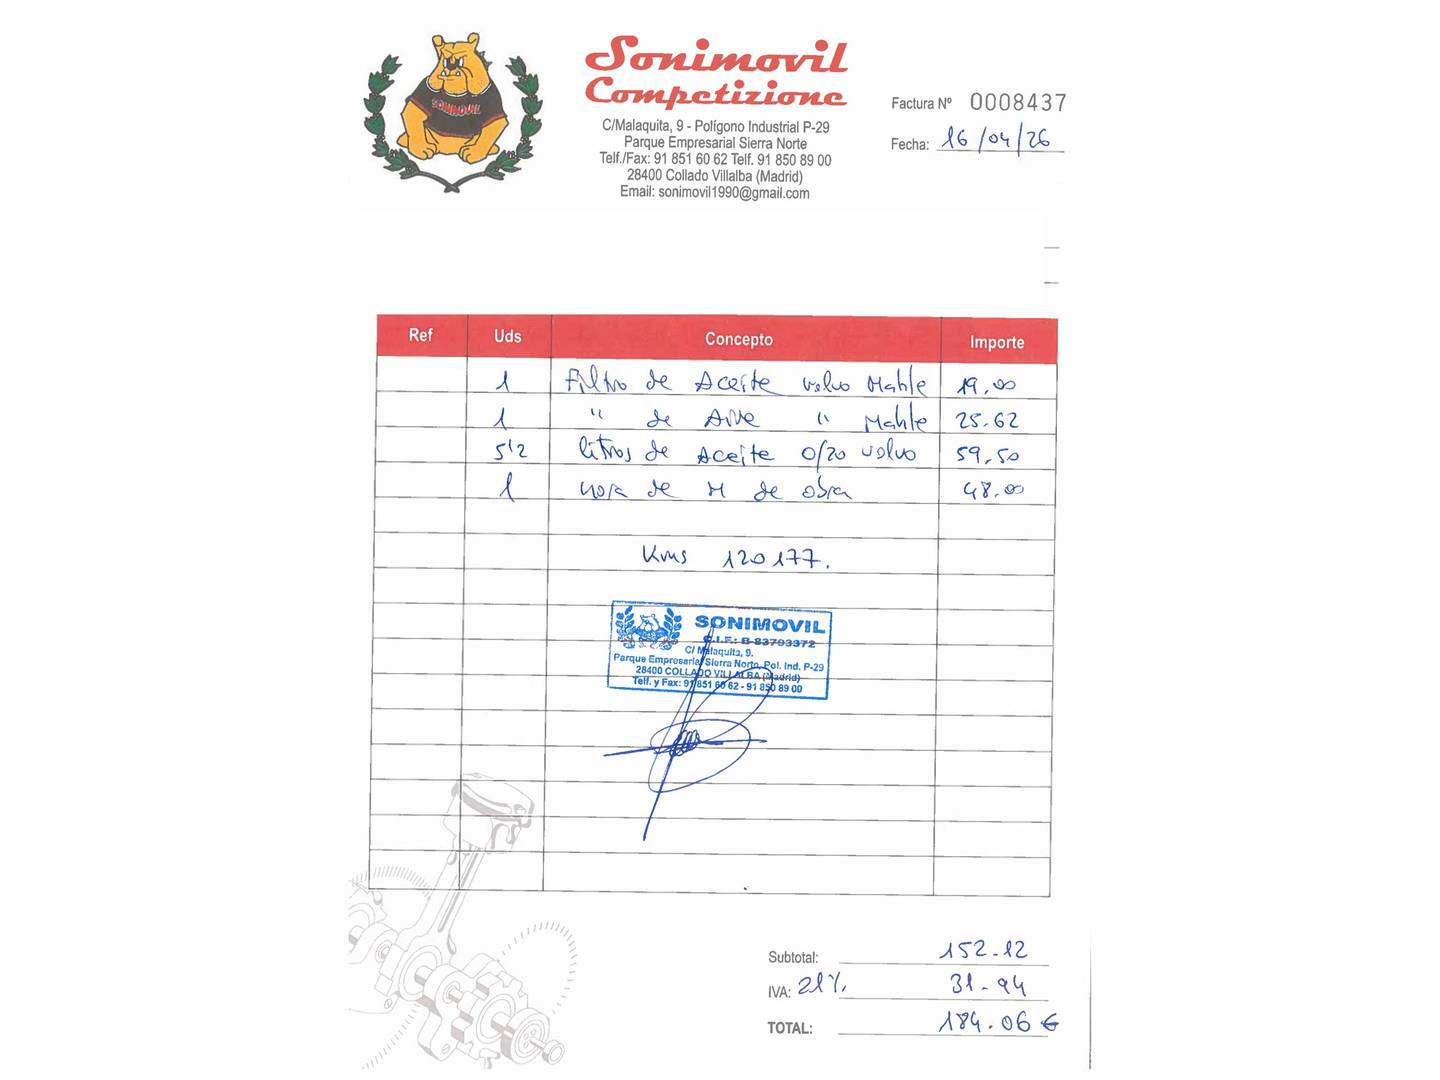 SONIMOVIL
Sonimovil
Competizione
C/Malaquita, 9 - Polígono Industrial P-29
Parque Empresarial Sierra Norte
Telf./Fax: 91 851 60 62 Telf. 91 850 89 00
28400 Collado Villalba (Madrid)
Email: sonimovil1990@gmail.com
Factura Nº 0008437
Fecha: 16/04/26
Ref Uds Concepto Importe
1 Filtro de Aceite volvo Mahle 19,00
1 " de Aire " Mahle 25.62
5'2 litros de Aceite 0/20 volvo 59,50
1 hora de M de obra 48.00
Kms 120177.
SONIMOVIL
C.I.F.: B-83793372
C/ Malaquita, 9.
Parque Empresarial Sierra Norte, Pol. Ind. P-29
28400 COLLADO VILLALBA (Madrid)
Telf. y Fax: 91 851 60 62 - 91 850 89 00
Subtotal: 152.12
IVA: 21% 31.94
TOTAL: 184.06 €